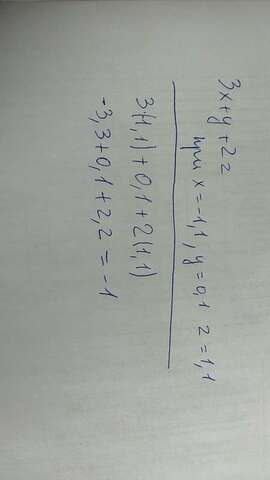 3x+y+2z
при x=-1,1, y=0,1 z=1,1
3(-1,1)+0,1+2(1,1)
-3,3+0,1+2,2=-1